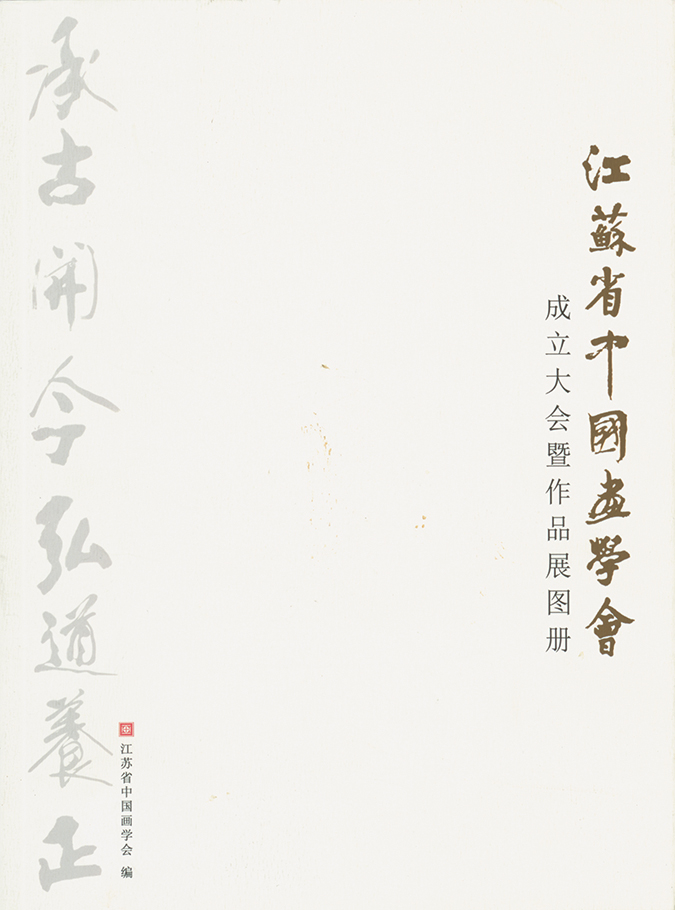 江蘇省中國畫學會
成立大会暨作品展图册
承古開今弘道養正
江苏省中国画学会 编